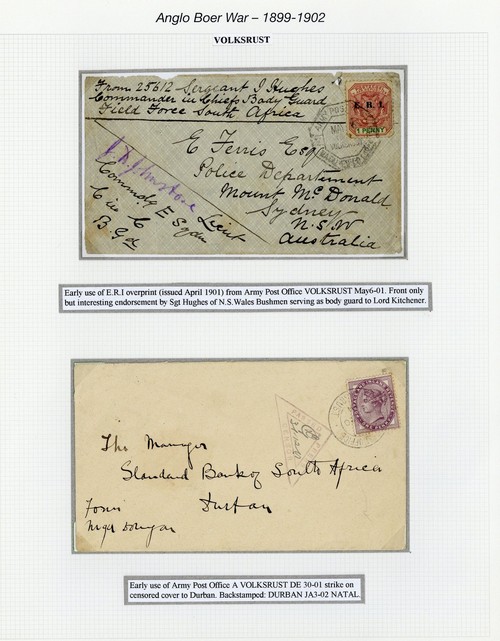 Anglo Boer War – 1899-1902
VOLKSRUST
From 25612 Sergeant J Hughes
Commander in Chiefs Body Guard
Field Force South Africa
E. R. I.
1 PENNY
ARMY POST
E Ferris Esq
Police Departement
Mount Mc Donald
Sydney
N.S.W
Australia
Lieut
Commdg E Sqdn
C in C
B Gd
Early use of E.R.I overprint (issued April 1901) from Army Post Office VOLKSRUST May6-01. Front only
but interesting endorsement by Sgt Hughes of N.S.Wales Bushmen serving as body guard to Lord Kitchener.
PASSED
The Manager
Standard Bank of South Africa
Durban
From
Early use of Army Post Office A VOLKSRUST DE 30-01 strike on
censored cover to Durban. Backstamped: DURBAN JA3-02 NATAL.